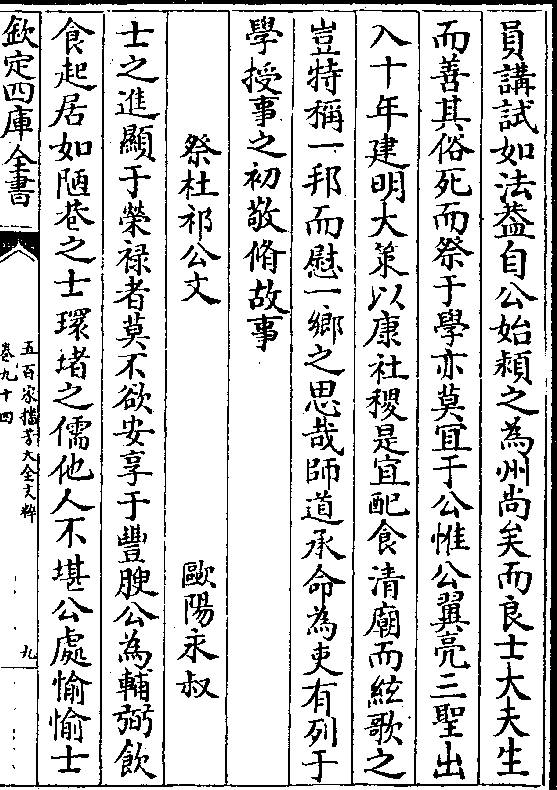 員講試如法葢自公始頖之為州尚矣而良士大夫生
而善其俗死而祭于學亦莫宜于公惟公翼亮三聖出
入十年建明大策以康社稷是宜配食清廟而絃歌之
豈特稱一邦而慰一鄉之思哉師道承命為吏有列于
學授事之初敬脩故事
祭杜祁公文　　　歐陽永叔
士之進顯于榮禄者莫不欲安享于豐腴公為輔弼飲
食起居如陋巷之士環堵之儒他人不堪公處愉愉士
欽定四庫全書
五百家播芳大全文粹
卷九十四
九